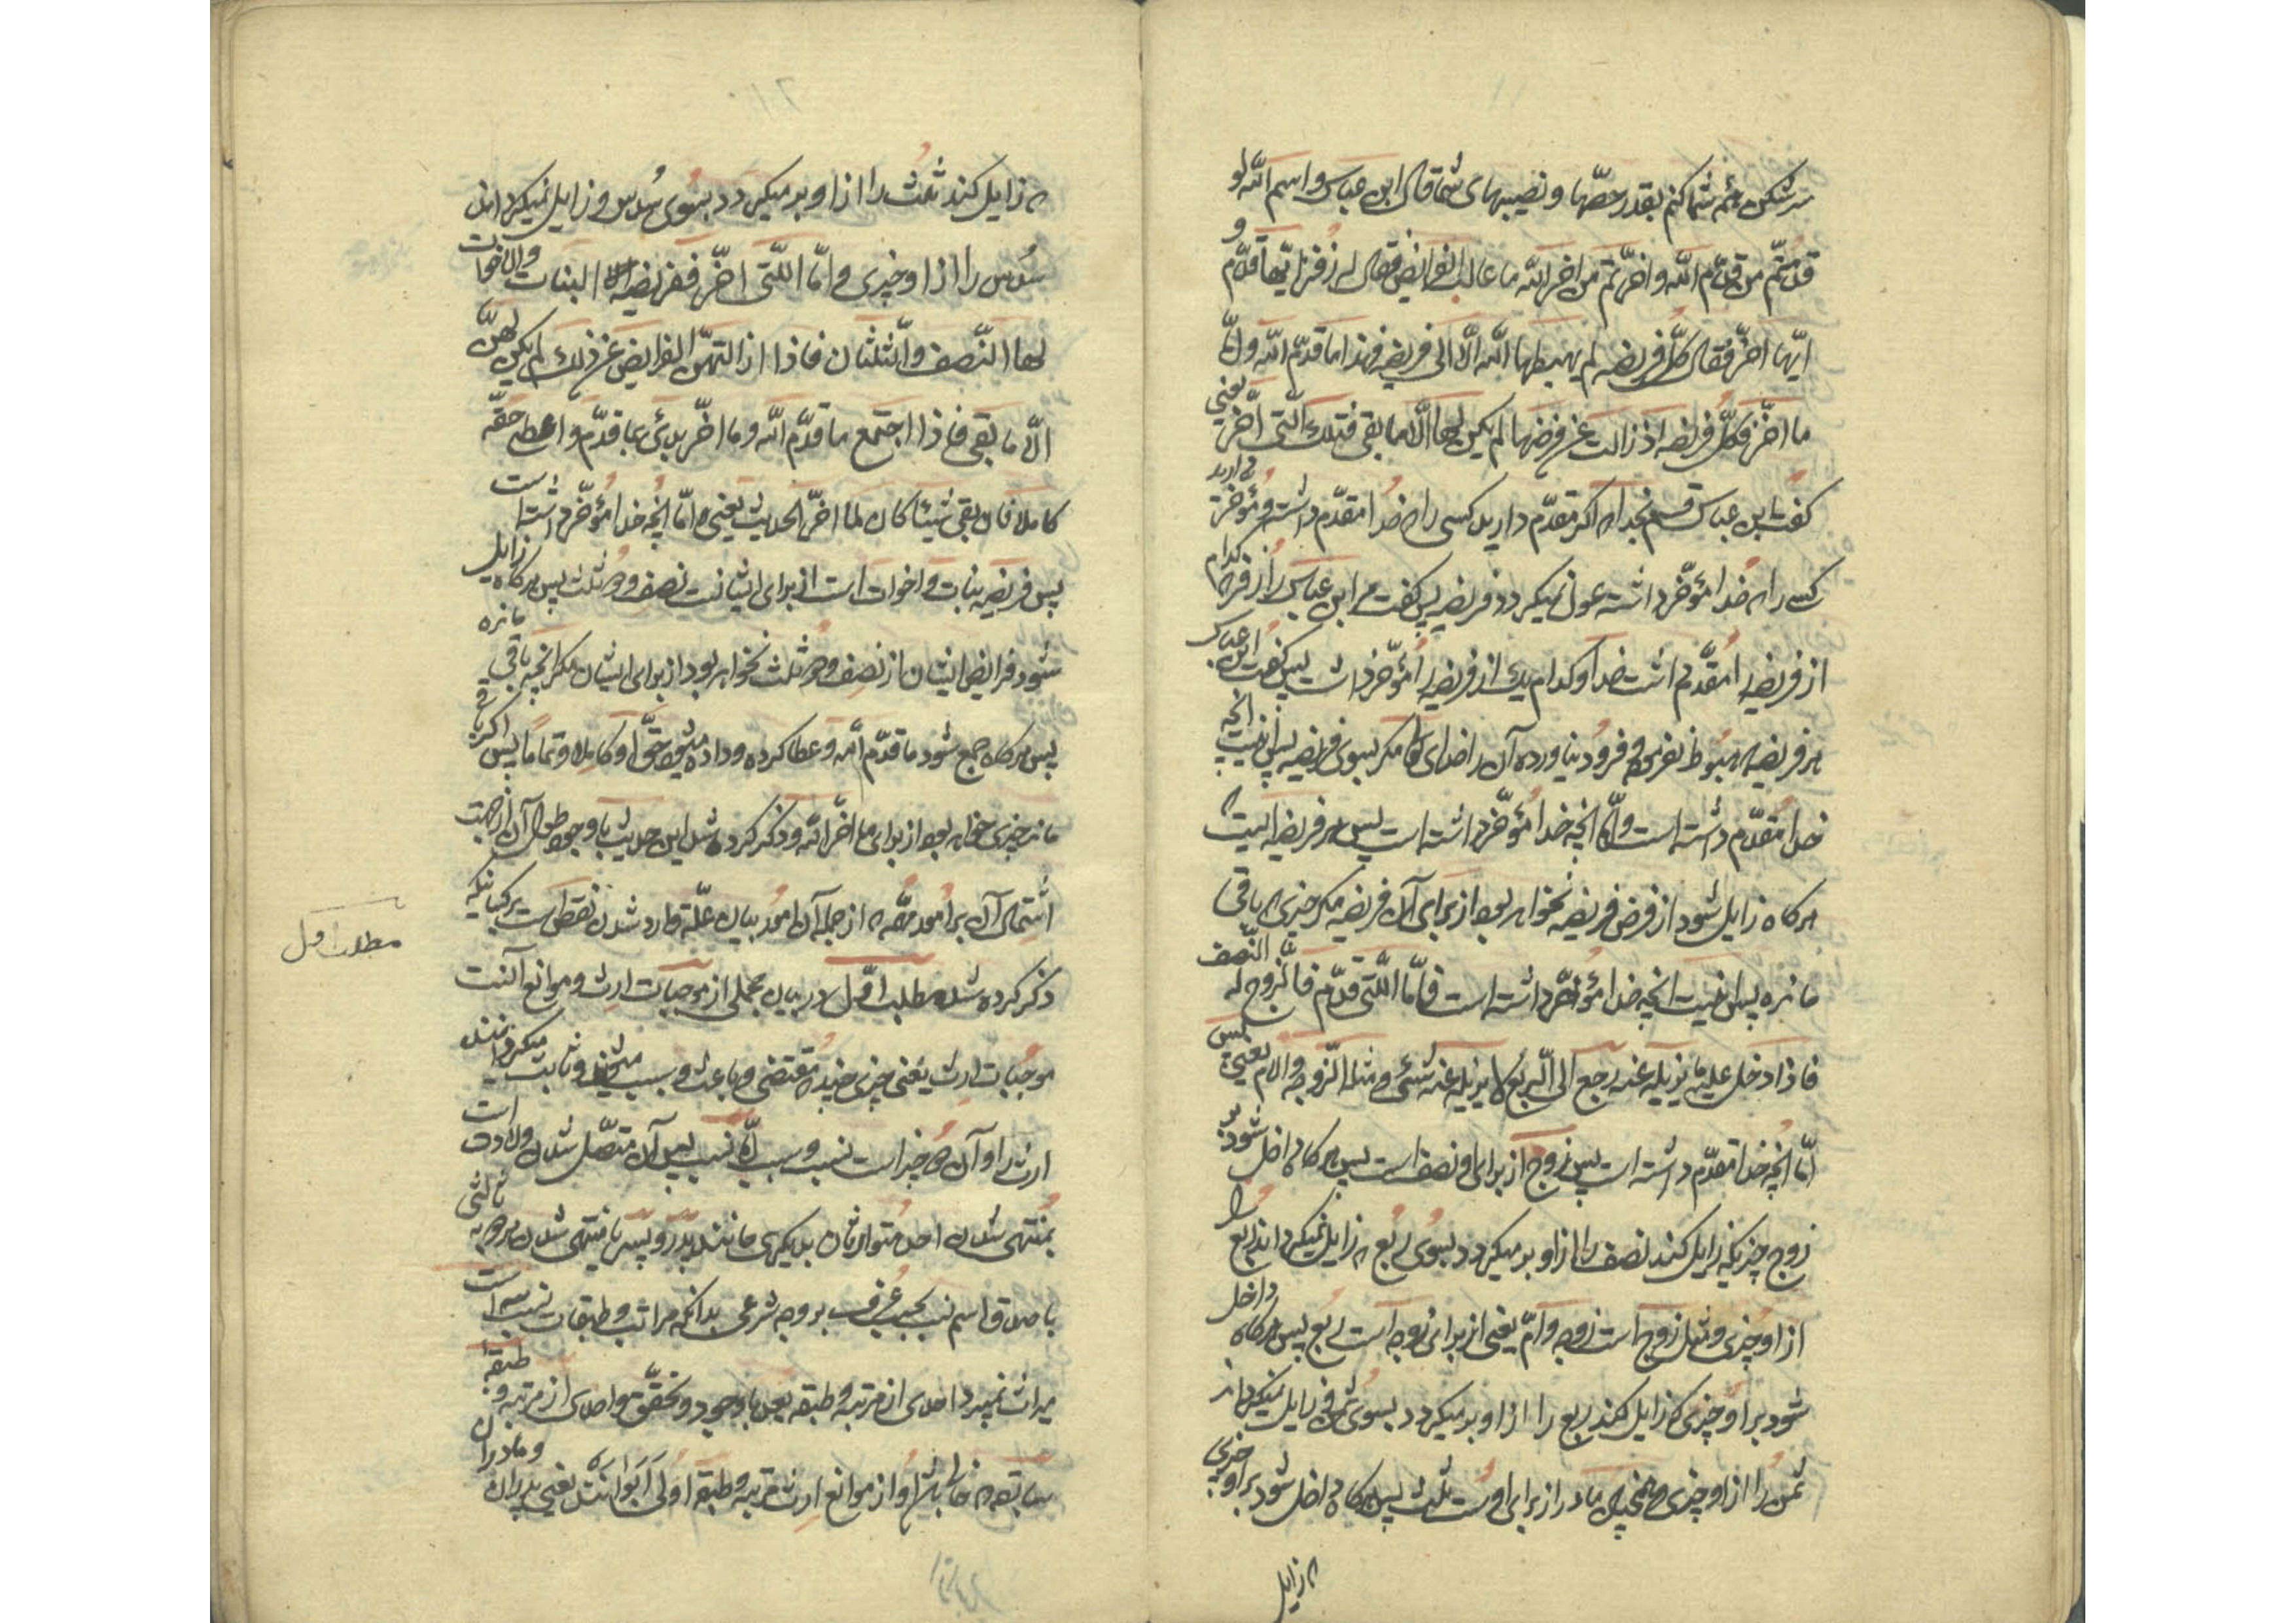 سرشکن عمر شما کنم بقدر حصّها و نصیبهای شما قال ابن عباس و اسم الله لو
قدّمتم من قدّم الله و اخّرتم من اخّر الله ما عالت الفرایض فقال له زفر ایّها قدّم و
ایّها اخّر فقال کلّ فریضه لم یهبطها الله الّا الی فریضه فهذا ما قدّم الله و امّا
ما اخّر فکلّ فریضه اذ زالت عن فرضها لم یکن لها الّا ما بقی فتلک الّتی اخّر یعنی
گفت ابن عباس قسم بخدا که اگر مقدّم دارید کسی را که خدا مقدّم داشته و مؤخّر دارید
کسی را که خدا مؤخّر داشته عول نمیکردد فریضه پس کفت مر ابن عباس را زفر کدام
از فریضه را مقدّم داشت خدا و کدام یک از فریضه را مؤخّر داشت پس کفت ابن عباس
هر فریضه که هبوط نفرموده و فرود نیاورده آن را خدای مکر بسوی فریضه پس اینست انچه
خدا مقدّم داشته است و امّا انچه خدا مؤخّر داشته است پس هر فریضه ایست که
هر کاه زایل شود از فرض فریضه نخواهد بود از برای آن فریضه مکر چیزی که باقی
مانده پس اینست انچه خدا مؤخّر داشته است فامّا اللّتی قدّم فالزّوج له النّصف
فاذا دخل علیه ما یزیله عنه رجع الی الرّبع لا یزیله عنه شیئ و مثله الزّوجه و الام یعنی
امّا انچه خدا مقدّم داشته است پس زوج از برای او نصف است پس هر کاه داخل شود بر
زوج چیزیکه زایل کند نصف را از او بر میکردد بسوی ربع که زایل نمیکرداند ربع را
از او چیزی و مثل زوج است زوجه و امّ یعنی از برای زوجه است ربع پس هرکاه داخل
شود بر او چیزی که زایل کند ربع را از او بر میکردد بسوی ثمن زایل نمیکرداند
ثمن را از او چیزی و همچنین مادر از برای اوست ثلث پس هرکاه داخل شود بر او چیزی
که زایل
که زایل کند ثلث را از او بر میکردد بسوی سدس و زایل نمیکرداند
سدس را از او چیزی و امّا اللّتی اخّر ففریضه البنات و الاخوات
لها النّصف و الثّلثان فاذا ازالتهنّ الفرایض عن ذلک لم یکن لهنّ
الّا ما بقی فاذا اجتمع ما قدّم الله و ما اخّر بدئ بما قدّم و اعطی حقّه
کاملا فان بقی شیئا کان لما اخّر الحدیث یعنی و امّا انچه خدا مؤخّر داشته است
پس فریضه بنات و اخوات است از برای ایشانست نصف و دو ثلث پس هر کاه زایل
شود فرایض ایشان از نصف و دو ثلث نخواهد بود از برای ایشان مکر انچه باقی مانده
پس هر کاه جمع شود ما قدّم الله و عطا کرده و داده میشود حقّ او کاملا و تماما پس اکر باقی
ماند چیزی خواهد بود از برای ما اخّر الله و ذکر کرده شد این حدیث با وجود طول آن از جهت
اشتمال آن بر امور مهمّه که از جمله آن امور بیان علّة وارد شدن نقص است بر کسانیکه
ذکر کرده شد مطلب اوّل در بیان مجملی از موجبات ارث و موانع آنست
موجبات ارث یعنی چیزی چند که مقتضی و باعث و سبب میشوند و ثابت میکردانند
ارث را و آن دو چیز است نسب و سبب امّا نسب پس آن متصّل شدن ولادت است
بمنتهی شدن احد متوارثان بدیکری مانند پدر و پسر یا منتهی شدن هر دو به ثالثی
با صدق اسم نسب بحسب عرف بر وجه شرعی بدانکه مراتب و طبقات نسب سه است
میراث نمیبرد احدی از مرتبه و طبقه بعد با وجود و تحقّق واحدی از مرتبه و طبقه
سابقه که خالی باشد او از موانع ارث مرتبه و طبقه اولی ابوانند یعنی پدران و مادران
مطلب اول